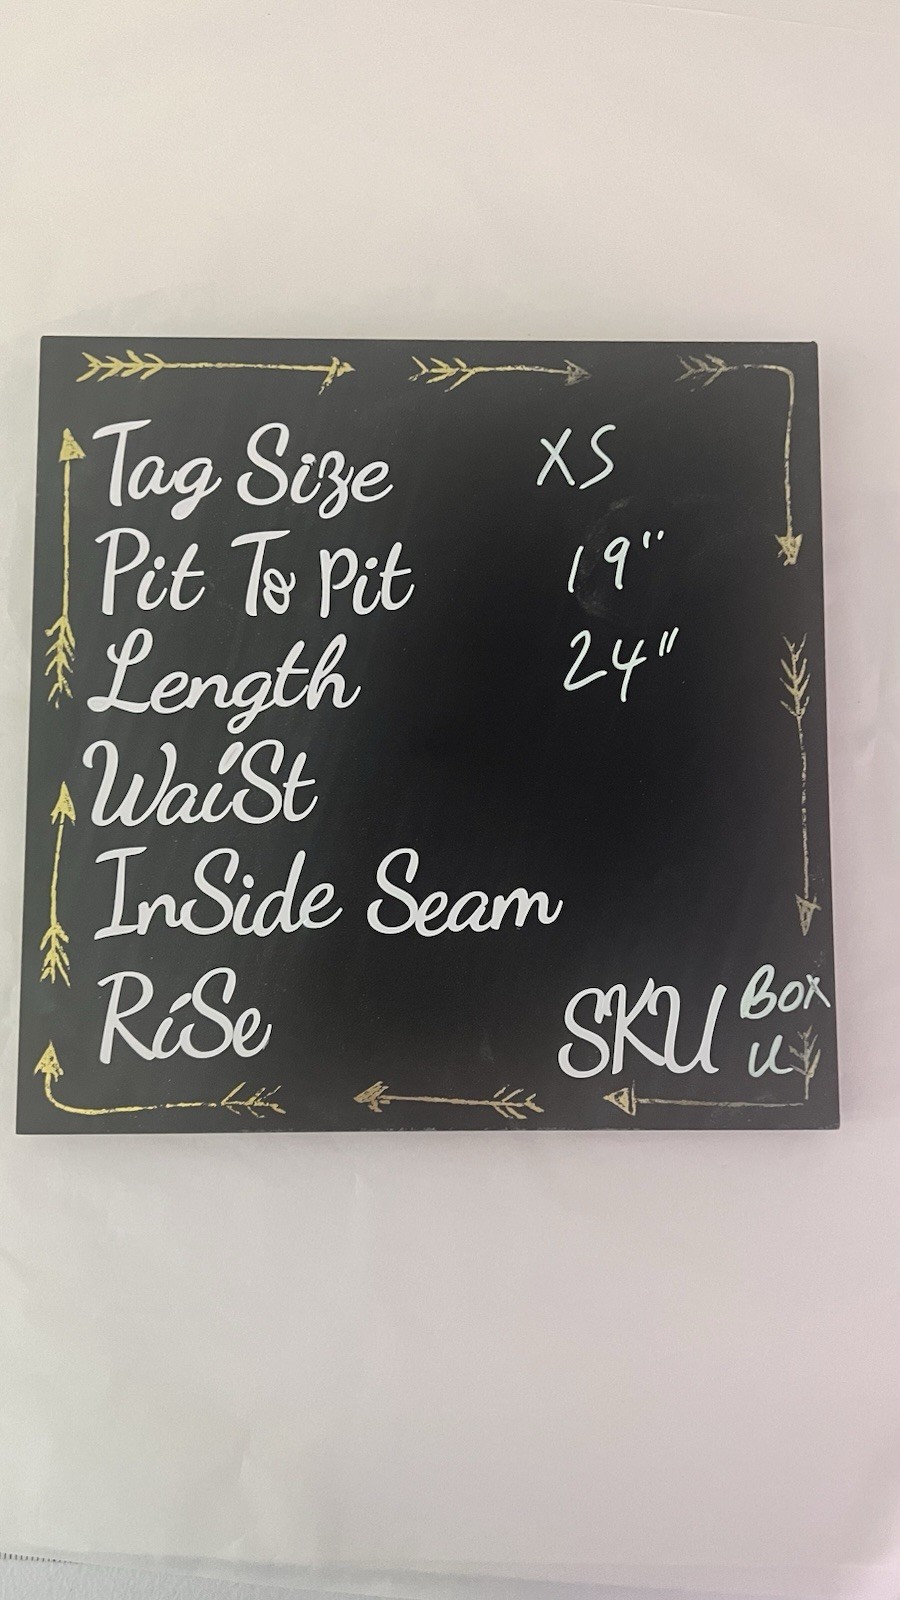 Tag Size XS
Pit To Pit 19"
Length 24"
WaiSt
InSide Seam
RiSe SKU Box
U